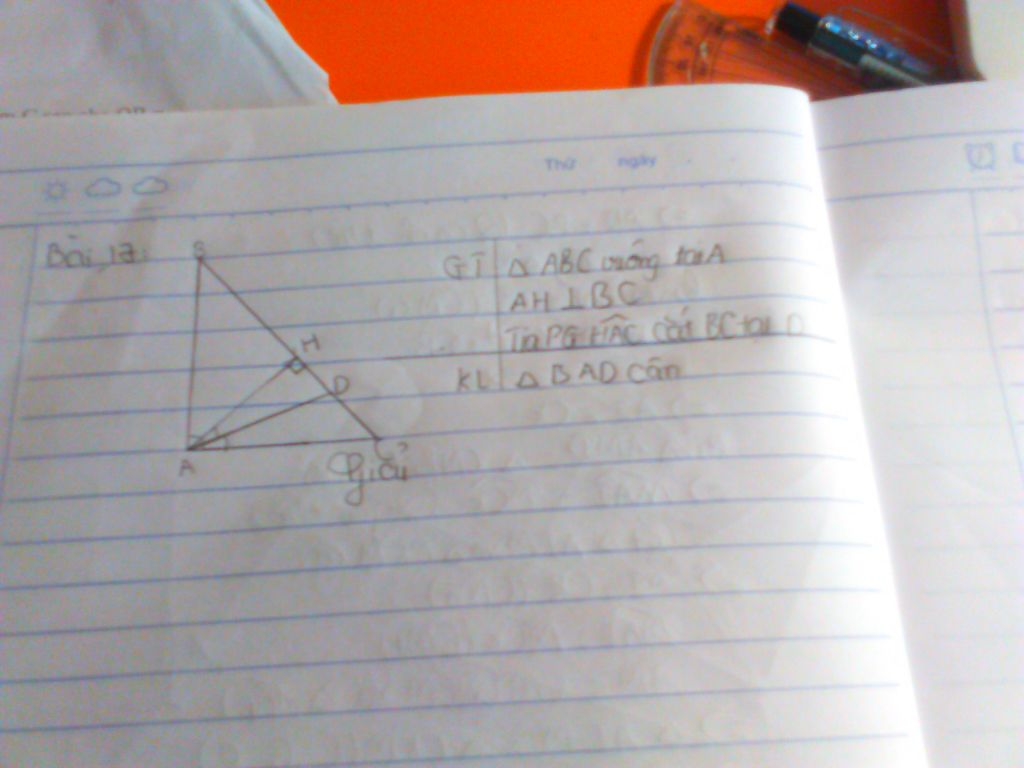 Thứ ngày
Bài 17:
B
GT Δ ABC vuông tại A
AH ⊥ BC
H
Tia PG HAC cắt BC tại D
D
KL Δ BAD cân
A
Giải